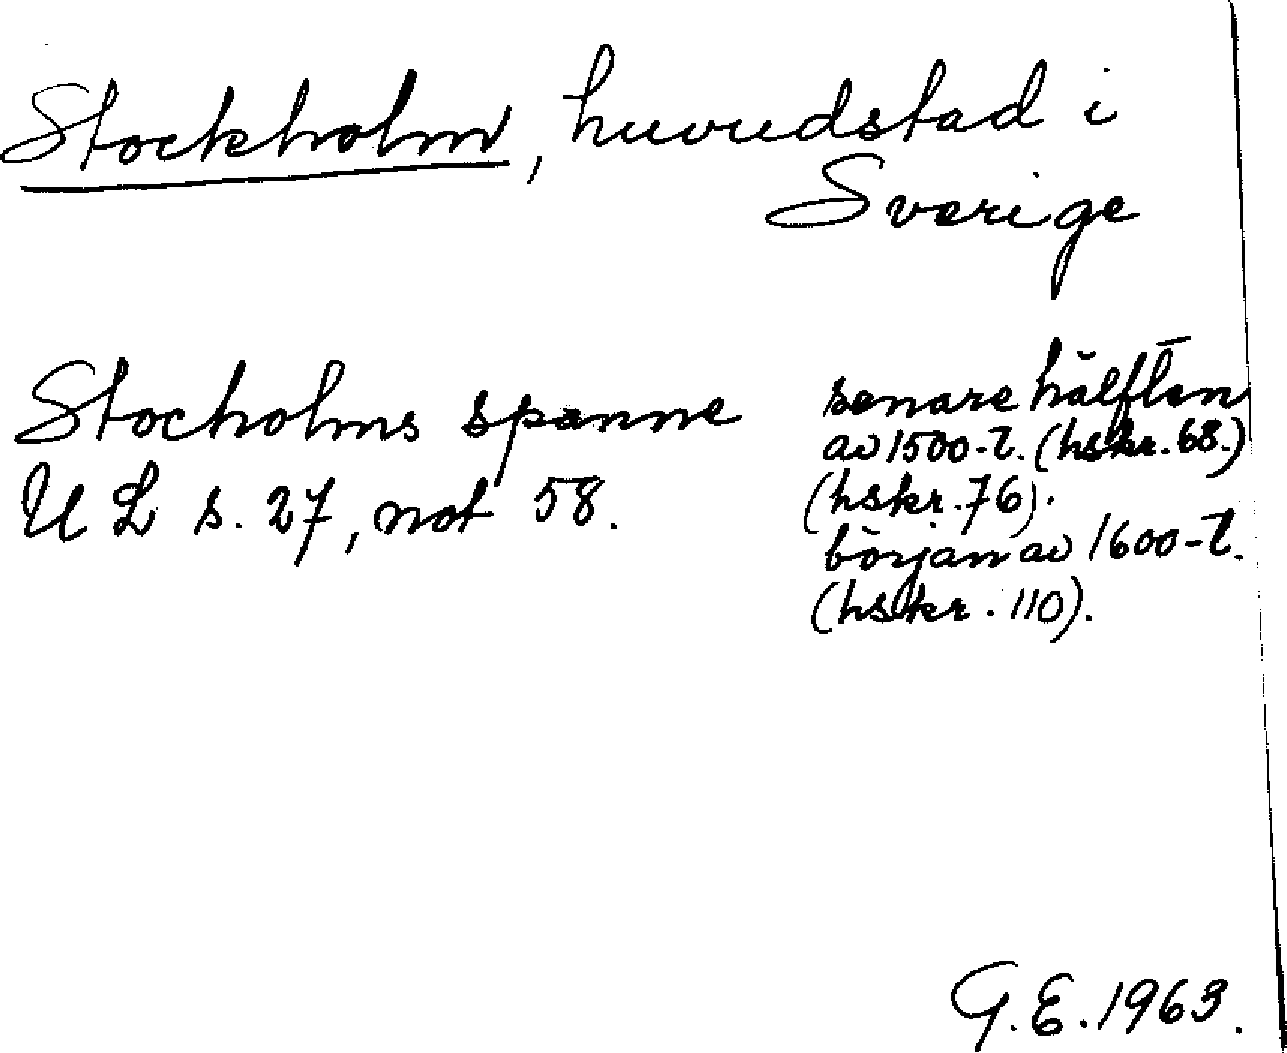 Stockholm, huvudstad i
Sverige
Stocholms spanne
UL s. 27, not 58.
senare hälften
av 1500-t. (hskr. 68.)
(hskr. 76).
början av 1600-t.
(hskr. 110).
G.E. 1963.